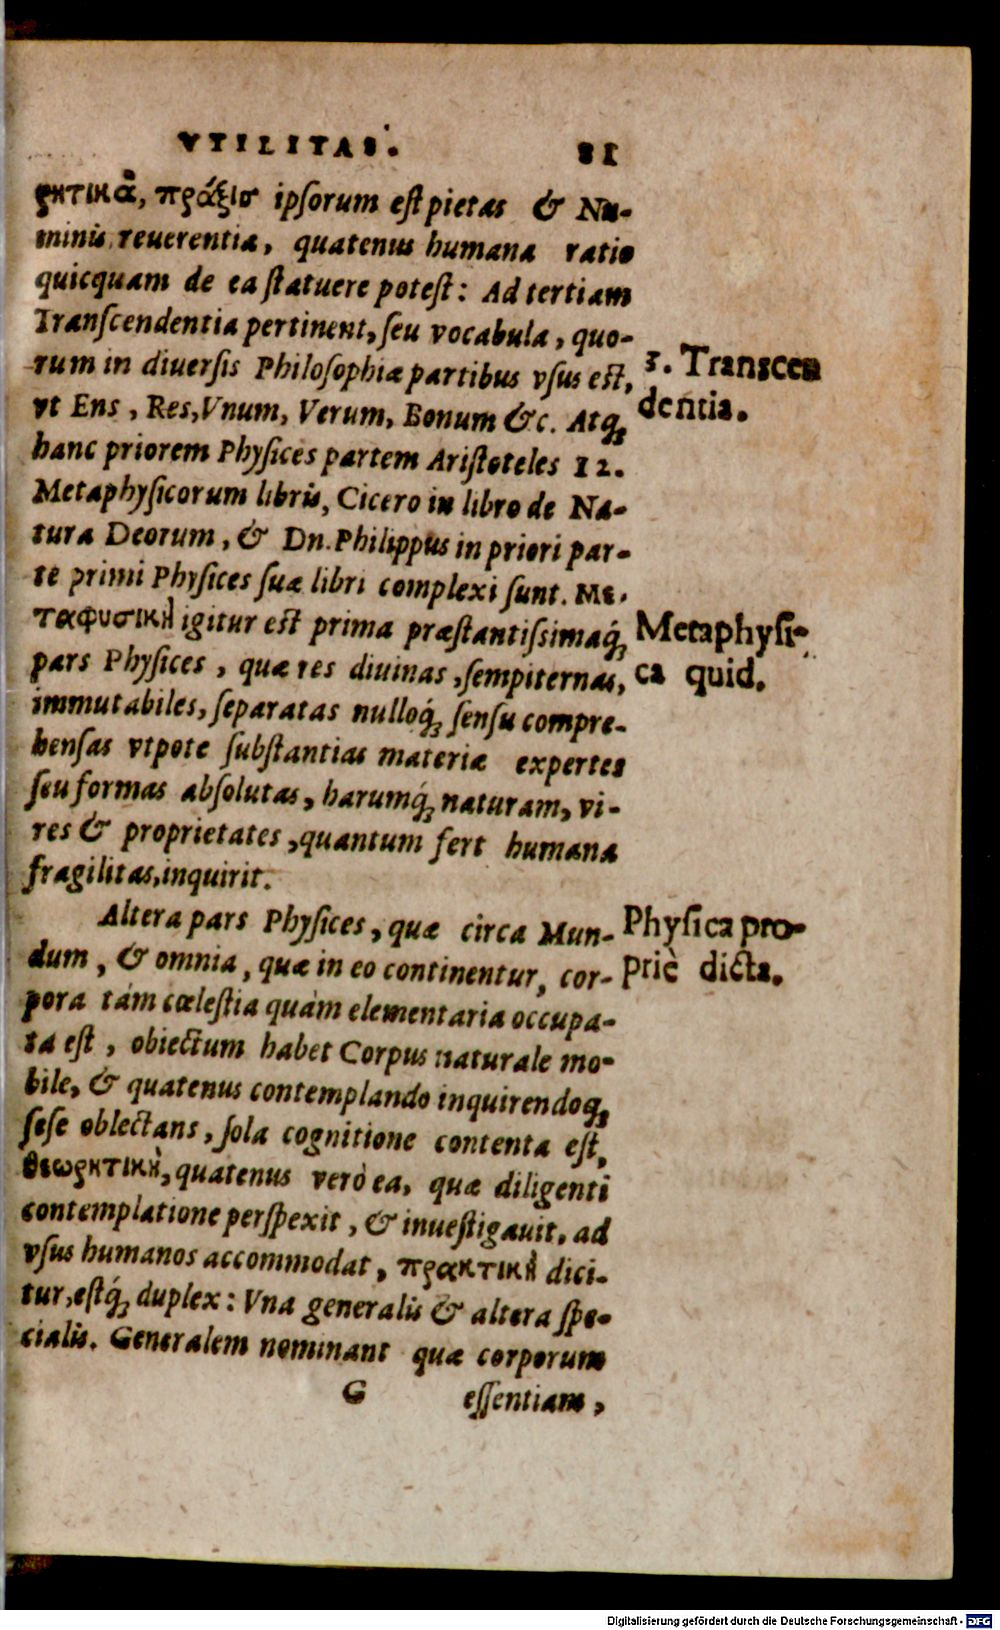 VTILITAS. 81
ρητικὰ, πράξισ ipsorum est pietas & Nu-
minis reuerentia, quatenus humana ratio
quicquam de ea statuere potest: Ad tertiam
Transcendentia pertinent, seu vocabula, quo-
rum in diuersis Philosophiæ partibus vsus est,
vt Ens, Res, Vnum, Verum, Bonum &c. Atq;
hanc priorem Physices partem Aristoteles 12.
Metaphysicorum libris, Cicero in libro de Na-
tura Deorum, & Dn. Philippus in priori par-
te primi Physices suæ libri complexi sunt. Με-
ταφυσικὴ igitur est prima præstantissimaq́;
pars Physices, quæ res diuinas, sempiternas,
immutabiles, separatas nulloq́; sensu compre-
hensas vtpote substantias materiæ expertes
seu formas absolutas, harumq́; naturam, vi-
res & proprietates, quantum fert humana
fragilitas, inquirit.
Altera pars Physices, quæ circa Mun-
dum, & omnia, quæ in eo continentur, cor-
pora tàm cœlestia quàm elementaria occupa-
ta est, obiectum habet Corpus naturale mo-
bile, & quatenus contemplando inquirendoq́;
sese oblectans, sola cognitione contenta est,
θεωρητικὴ, quatenus verò ea, quæ diligenti
contemplatione perspexit, & inuestigauit, ad
vsus humanos accommodat, πρακτικὴ dici-
tur, estq́; duplex: Vna generalis & altera spe-
cialis. Generalem nominant quæ corporum
G essentiam,
3. Transcen
dentia.
Metaphysi-
ca quid.
Physica pro-
priè dicta.
Digitalisierung gefördert durch die Deutsche Forschungsgemeinschaft - DFG